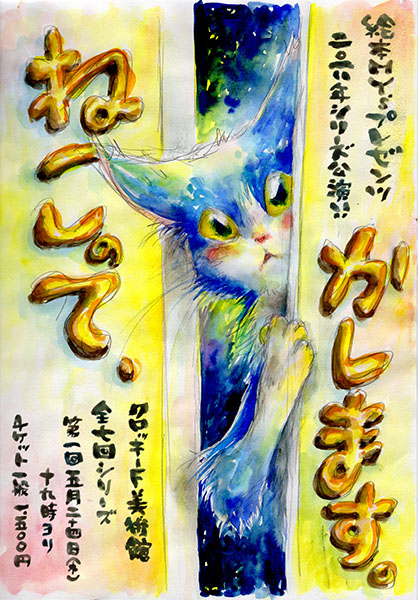 絵本MY'sプレゼンツ!!
二〇一八年シリーズ公演!!
ねこのて、
かします。
クロッキーF美術館
全七回シリーズ
第一回五月二十四日(木)
十九時ヨリ
チケット一般 一五〇〇円